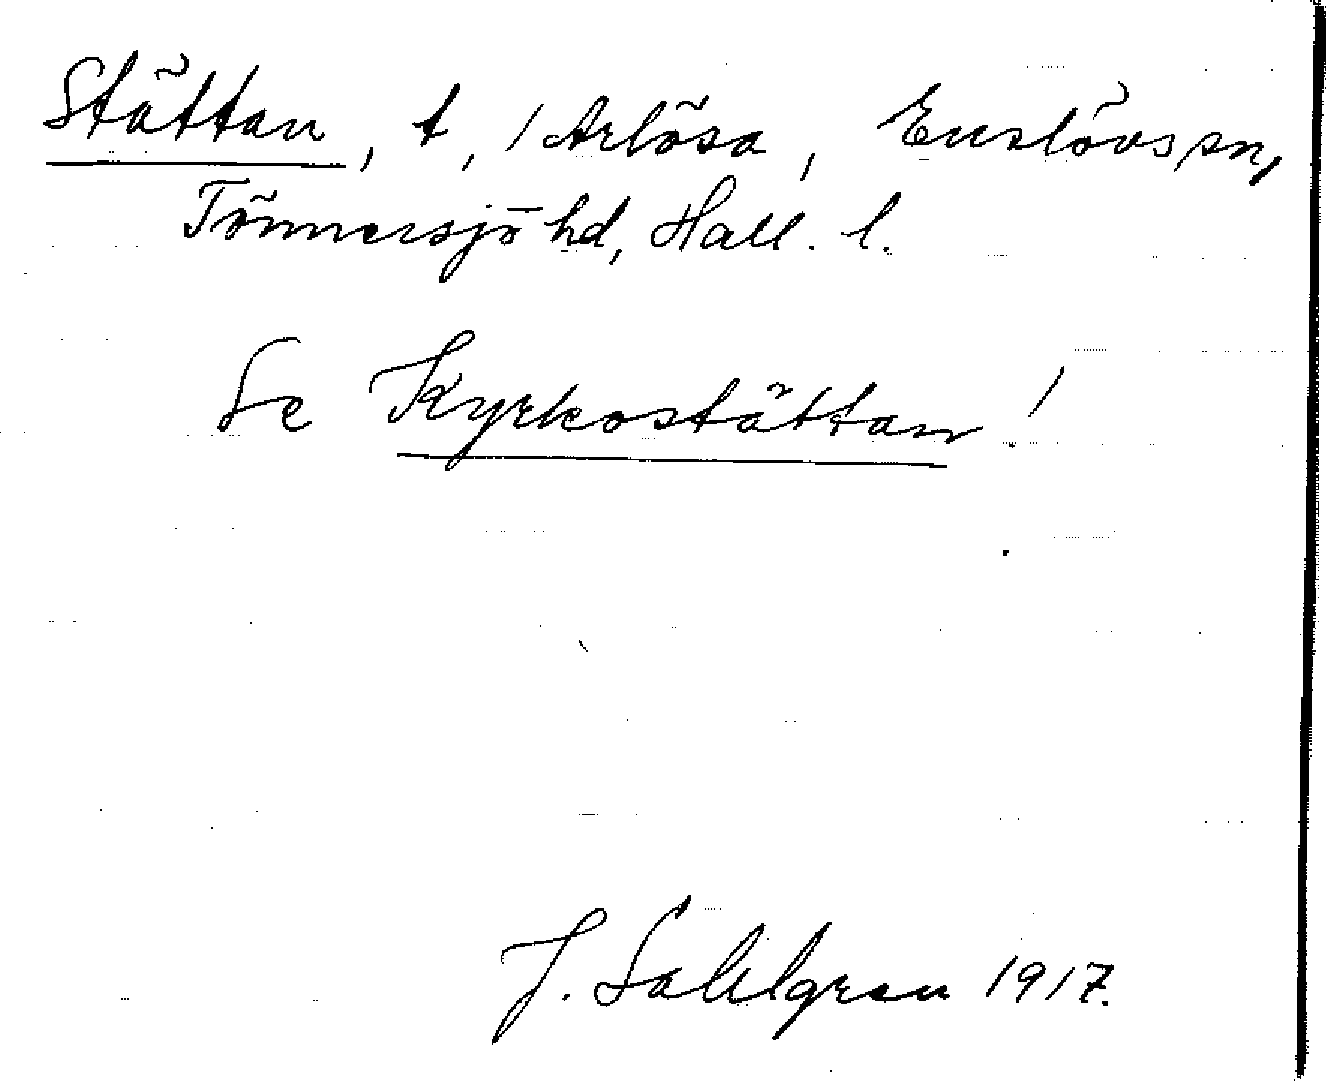 Stättan, t, / Arlösa, Enslövs sn,
Tönnersjö hd, Hall. l.
Se Kyrkostättan!
J. Sahlgren 1917.